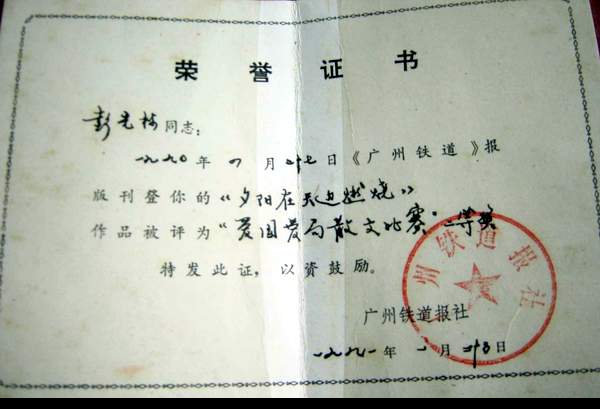 荣誉证书
彭光楼同志:
一九九〇年一月廿七日《广州铁道》报
版刊登你的《夕阳在天边燃烧》
作品被评为“爱国爱局散文比赛”二等奖
特发此证,以资鼓励。
广州铁道报社
一九九一年一月廿日
广州铁道报社